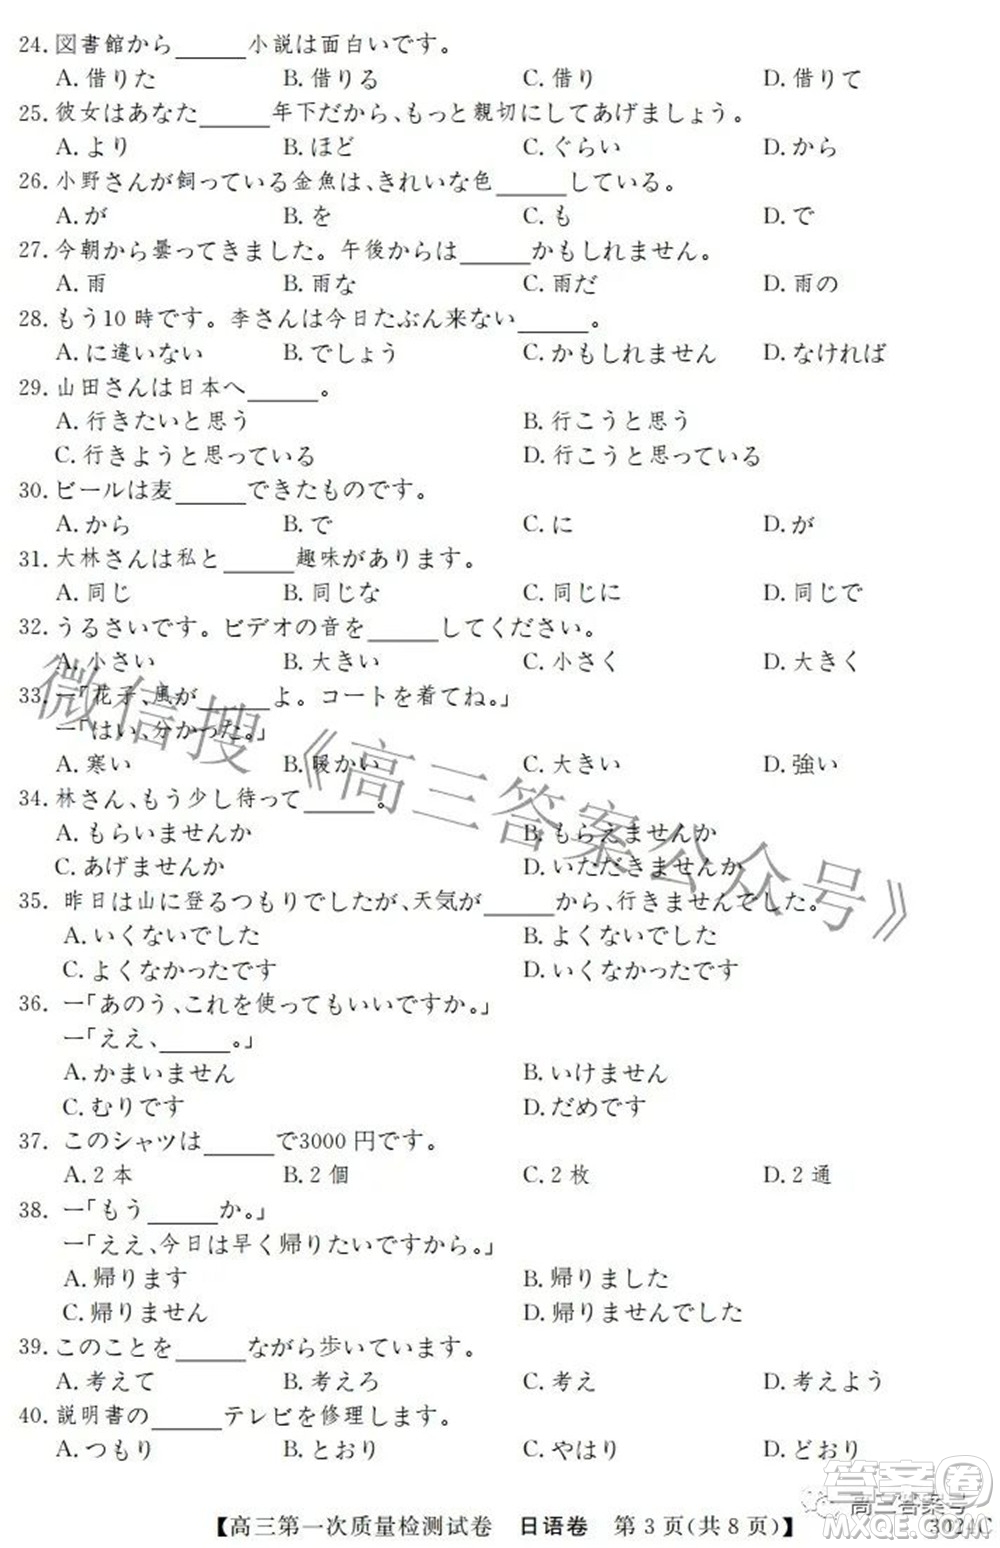 24. 図書館から______小説は面白いです。
A. 借りた B. 借りる C. 借り D. 借りて
25. 彼女はあなた______年下だから、もっと親切にしてあげましょう。
A. より B. ほど C. ぐらい D. から
26. 小野さんが飼っている金魚は、きれいな色______している。
A. が B. を C. も D. で
27. 今朝から曇ってきました。午後からは______かもしれません。
A. 雨 B. 雨な C. 雨だ D. 雨の
28. もう10時です。李さんは今日たぶん来ない______。
A. に違いない B. でしょう C. かもしれません D. なければ
29. 山田さんは日本へ______。
A. 行きたいと思う B. 行こうと思う
C. 行きようと思っている D. 行こうと思っている
30. ビールは麦______できたものです。
A. から B. で C. に D. が
31. 大林さんは私と______趣味があります。
A. 同じ B. 同じな C. 同じに D. 同じで
32. うるさいです。ビデオの音を______してください。
A. 小さい B. 大きい C. 小さく D. 大きく
33. ー「花子、風が______よ。コートを着てね。」
ー「はい、分かった。」
A. 寒い B. 暖かい C. 大きい D. 強い
34. 林さん、もう少し待って______。
A. もらいませんか B. もらえませんか
C. あげませんか D. いただきませんか
35. 昨日は山に登るつもりでしたが、天気が______から、行きませんでした。
A. いくないでした B. よくないでした
C. よくなかったです D. いくなかったです
36. ー「あのう、これを使ってもいいですか。」
ー「ええ、______。」
A. かまいません B. いけません
C. むりです D. だめです
37. このシャツは______で3000円です。
A. 2本 B. 2個 C. 2枚 D. 2通
38. ー「もう______か。」
ー「ええ、今日は早く帰りたいですから。」
A. 帰ります B. 帰りました
C. 帰りません D. 帰りませんでした
39. このことを______ながら歩いています。
A. 考えて B. 考えろ C. 考え D. 考えよう
40. 説明書の______テレビを修理します。
A. つもり B. とおり C. やはり D. どおり
【高三第一次质量检测试卷 日语卷 第3页(共8页)】 3024C
微信搜《高三答案公众号》
高三答案号
答案圈
MXQE.COM